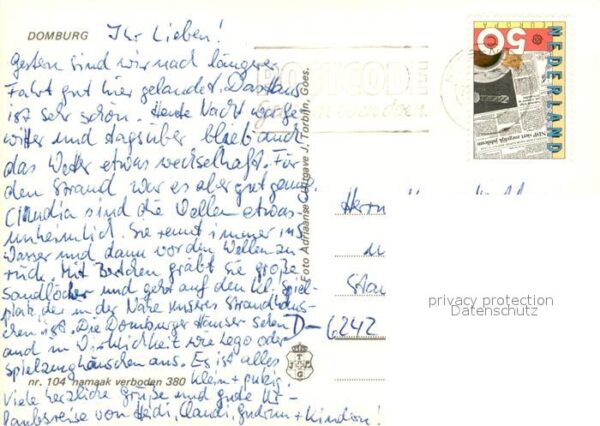 DOMBURG
Ihr Lieben!
Gestern sind wir nach langer
Fahrt gut hier gelandet. Das Haus
ist sehr schön. Heute Nacht war Ge-
witter und tagsüber blieb auch
das Wetter etwas wechselhaft. Für
den Strand war es aber gut genug.
Claudia sind die Wellen etwas
unheimlich. Sie rennt immer ins
Wasser und dann vor den Wellen zu-
rück. Mit gräbt sie große
Sandlöcher und geht auf den kl. Spiel-
platz, der in der Nähe unseres Strandhäus-
chen ist. Die Domburger Häuser sehen
auch in Wirklichkeit wie Lego oder
Spielzeughäuschen aus. Es ist alles
klein + putzig.
Viele herzliche Grüße und gute Ur-
laubsreise von Heidi, Claudi, Gudrun + Kindern!
nr. 104 namaak verboden 380
Foto Adriaanse Uitgave J. Torbijn, Goes.
POSTCODE
50
NEDERLAND
EUROPA
Herrn
D-6242
privacy protection
Datenschutz